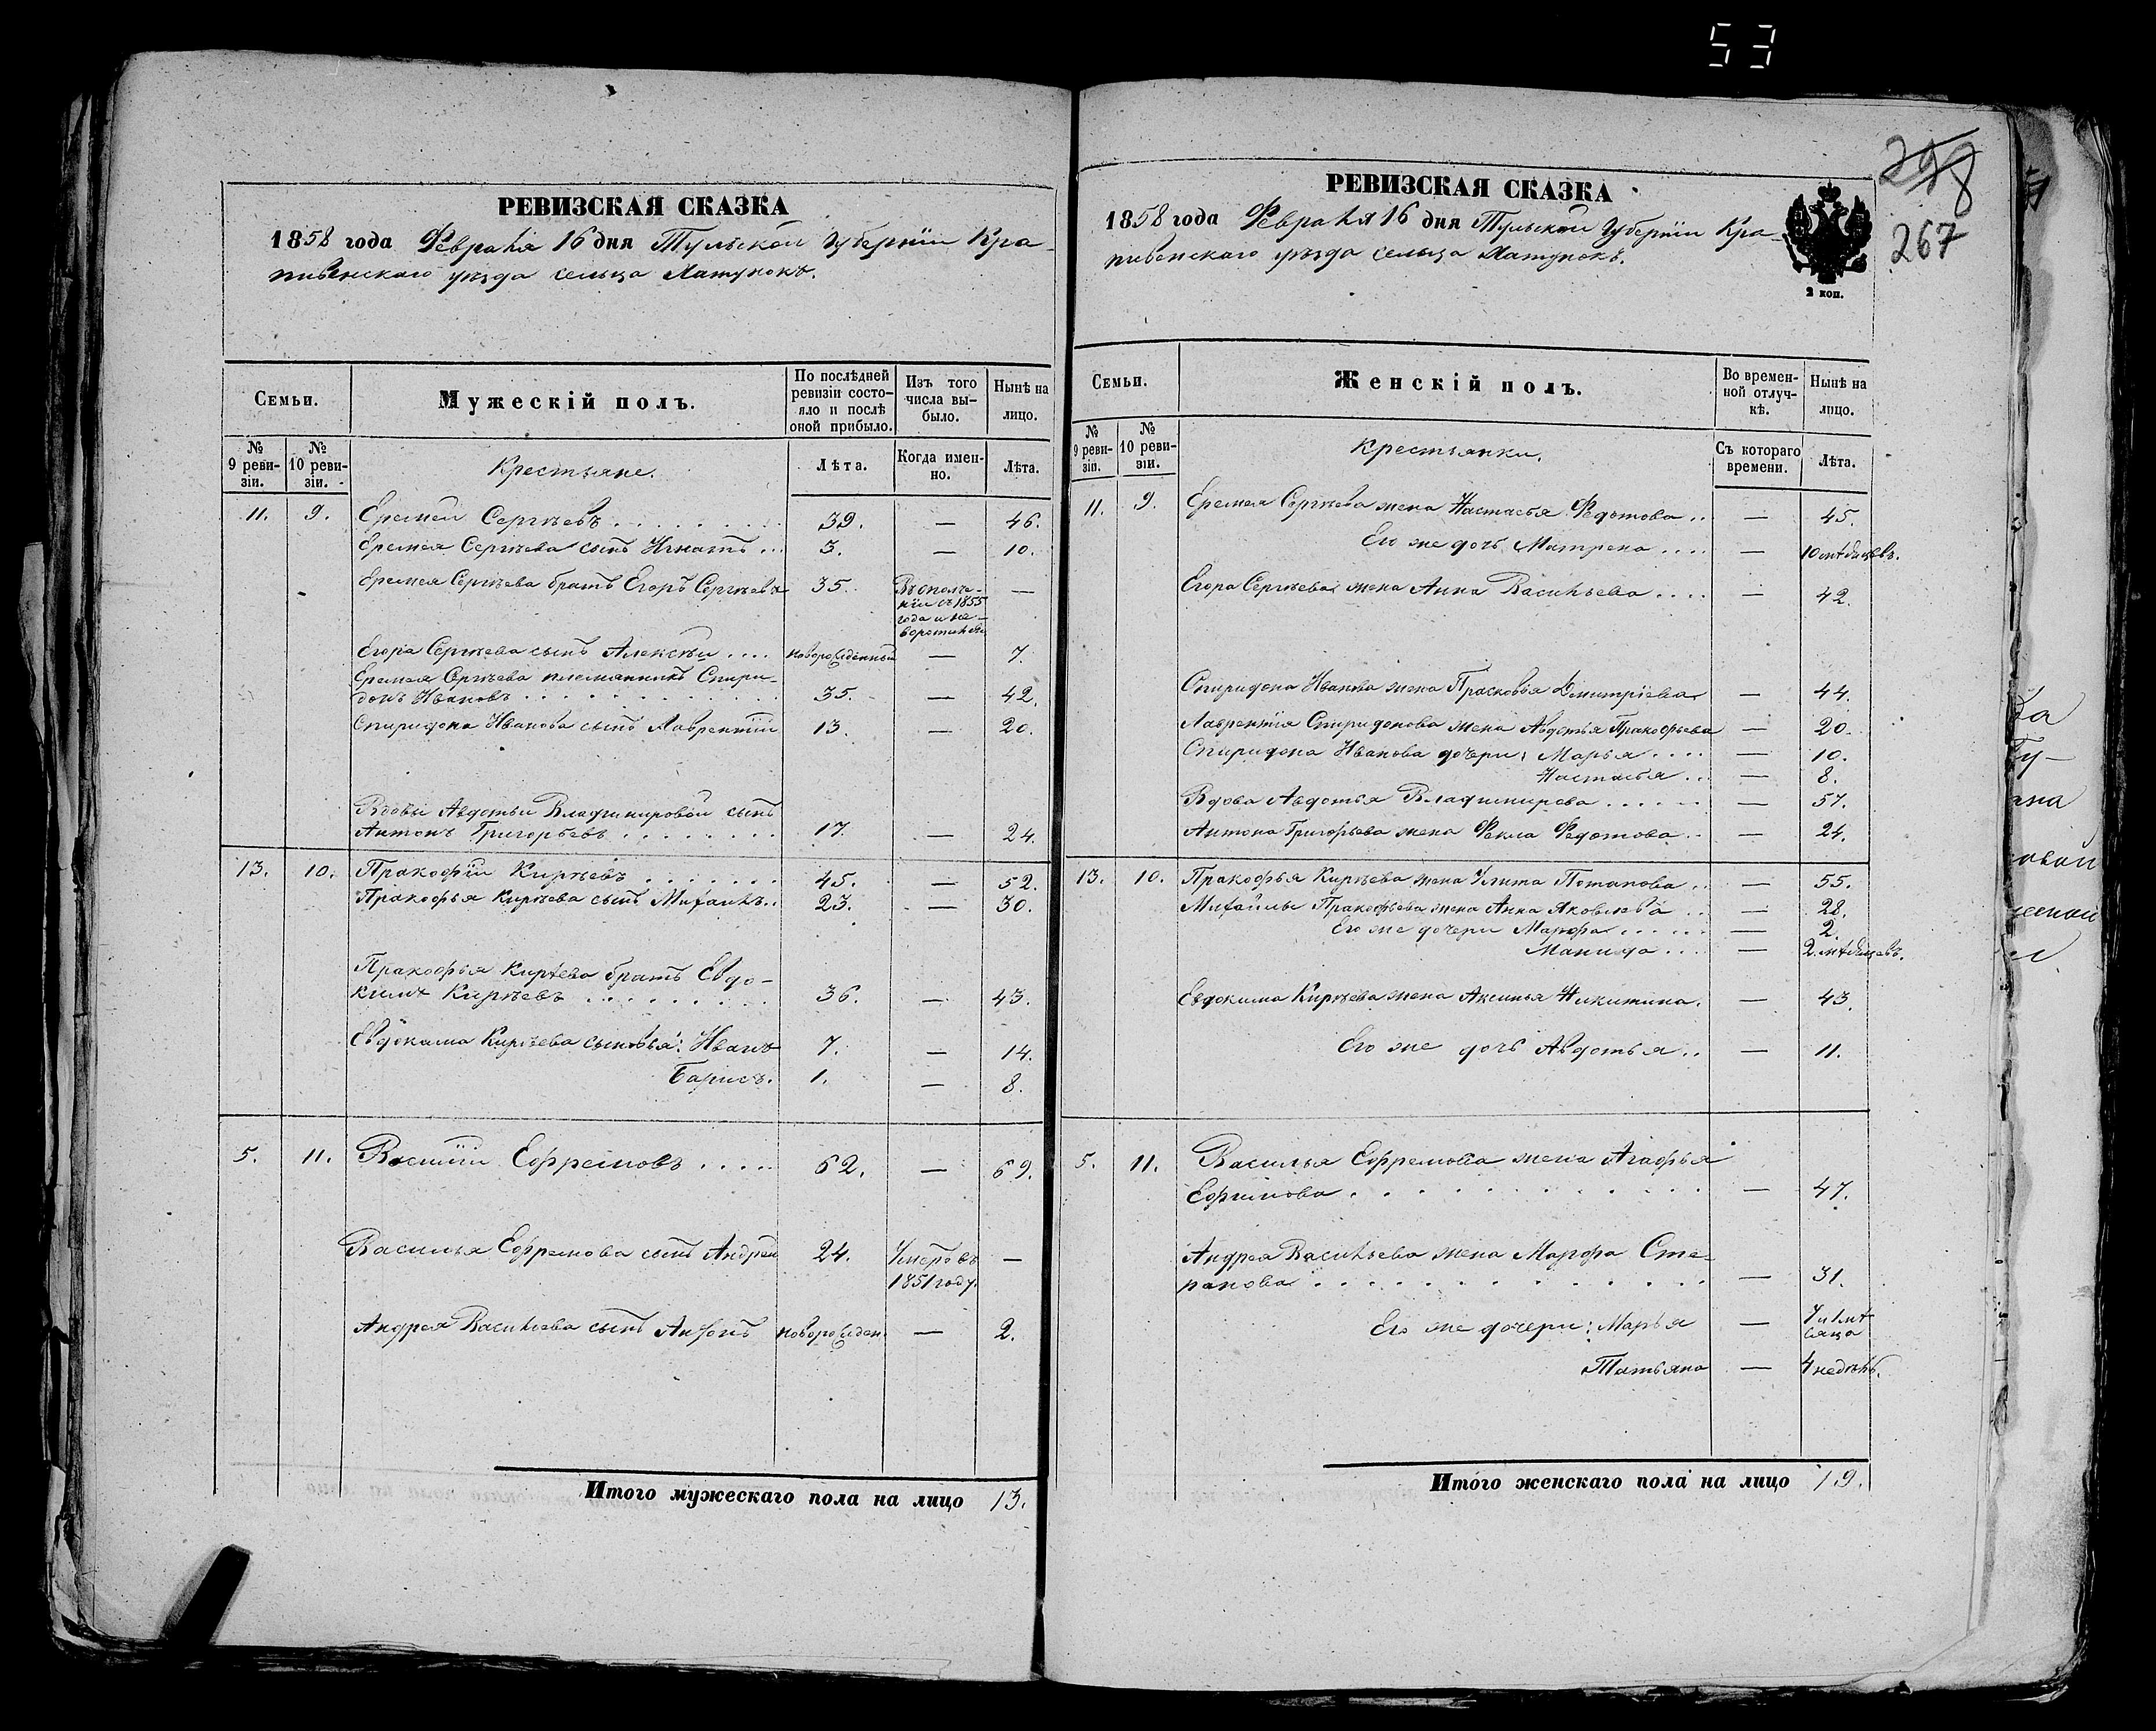 53
РЕВИЗСКАЯ СКАЗКА
1858 года Февраля 16 дня Тульской Губернiи Кра-
пивенскаго уѣзда сельца
Семьи.
Мужескiй полъ.
По послѣдней ревизiи состо-
яло и послѣ оной прибыло.
Изъ того числа вы-
было.
Нынѣ на лицо.
№ 9 реви-
зiи.
№ 10 реви-
зiи.
Крестьяне.
Лѣта.
Когда имен-
но.
Лѣта.
11. 9. Еремей Сергѣевъ 39. — 46.
Еремея Сергѣева сынъ Игнатъ 3. — 10.
Еремея Сергѣева братъ Егоръ Сергѣевъ 35. Въ ополче-
нiи съ 1855
года и не
воротился —
Егора Сергѣева сынъ Алексѣй новорожденный — 7.
Еремея Сергѣева племянникъ Спири-
донъ Ивановъ 35. — 42.
Спиридона Иванова сынъ Лаврентiй 13. — 20.
Вдовы Авдотьи Владимировой сынъ
Антонъ Григорьевъ 17. — 24.
13. 10. Пракофiй Кирѣевъ 45. — 52.
Пракофья Кирѣева сынъ Михаилъ 23. — 30.
Пракофья Кирѣева братъ Евдо-
кимъ Кирѣевъ 36. — 43.
Евдокима Кирѣева сыновья: Иванъ 7. — 14.
Барисъ. 1. — 8.
5. 11. Василiй Ефремовъ 62. — 69.
Василья Ефремова сынъ Андрей 24. Умеръ въ
1851 году. —
Андрея Васильева сынъ новорожден. — 2.
Итого мужескаго пола на лицо 13.
298
267
РЕВИЗСКАЯ СКАЗКА
1858 года Февраля 16 дня Тульской Губернiи Кра-
пивенскаго уѣзда сельца
2 коп.
Семьи.
Женскiй полъ.
Во времен-
ной отлуч-
кѣ.
Нынѣ на лицо.
№ 9 реви-
зiи.
№ 10 реви-
зiи.
Крестьянки.
Съ котораго времени.
Лѣта.
11. 9. Еремея Сергѣева жена Настасья Федотова — 45.
Его же дочь Матрена — 10 мѣсяцевъ.
Егора Сергѣева жена Анна Васильева — 42.
Спиридона Иванова жена Прасковья Дмитрiева — 44.
Лаврентiя Спиридонова жена Авдотья Пракофьева — 20.
Спиридона Иванова дочери: Марья — 10.
Настасья — 8.
Вдова Авдотья Владимирова — 57.
Антона Григорьева жена Фекла Федотова — 24.
13. 10. Пракофья Кирѣева жена Улита Потапова — 55.
Михайлы Пракофьева жена Анна Яковлева — 28.
Его же дочери Марфа — 2.
— 2. мѣсяцевъ.
Евдокима Кирѣева жена Аксинья Никитина. — 43.
Его же дочь Авдотья — 11.
5. 11. Василья Ефремова жена Агафья
Ефимова — 47.
Андрея Васильева жена Марфа Сте-
панова — 31.
Его же дочери: Марья —
Татьяна — 4 недѣль.
Итого женскаго пола на лицо 19.